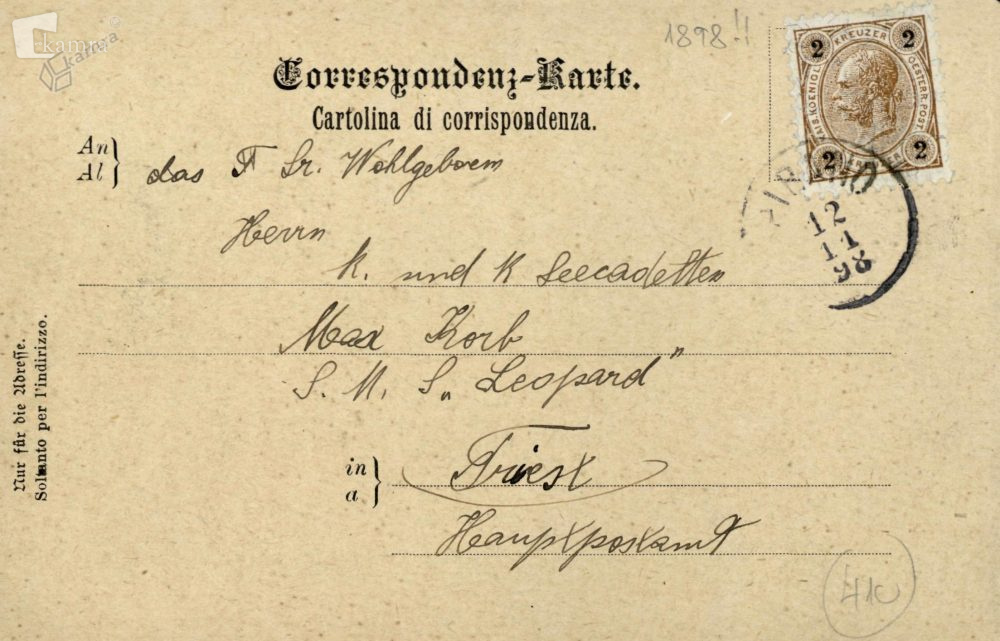 kamra
kamra©
1898!!
Correspondenz-Karte.
Cartolina di corrispondenza.
An
Al
das Sr. Wohlgeborem
Herrn
k. und k Seecadetten
Max Korb
S. M. S „Leopard"
in
a
Triest
Hauptpostamt
Nur für die Adresse.
Soltanto per l'indirizzo.
2 KREUZER 2
OESTERR. POST
2 2
PIRANO
12
11
98
410